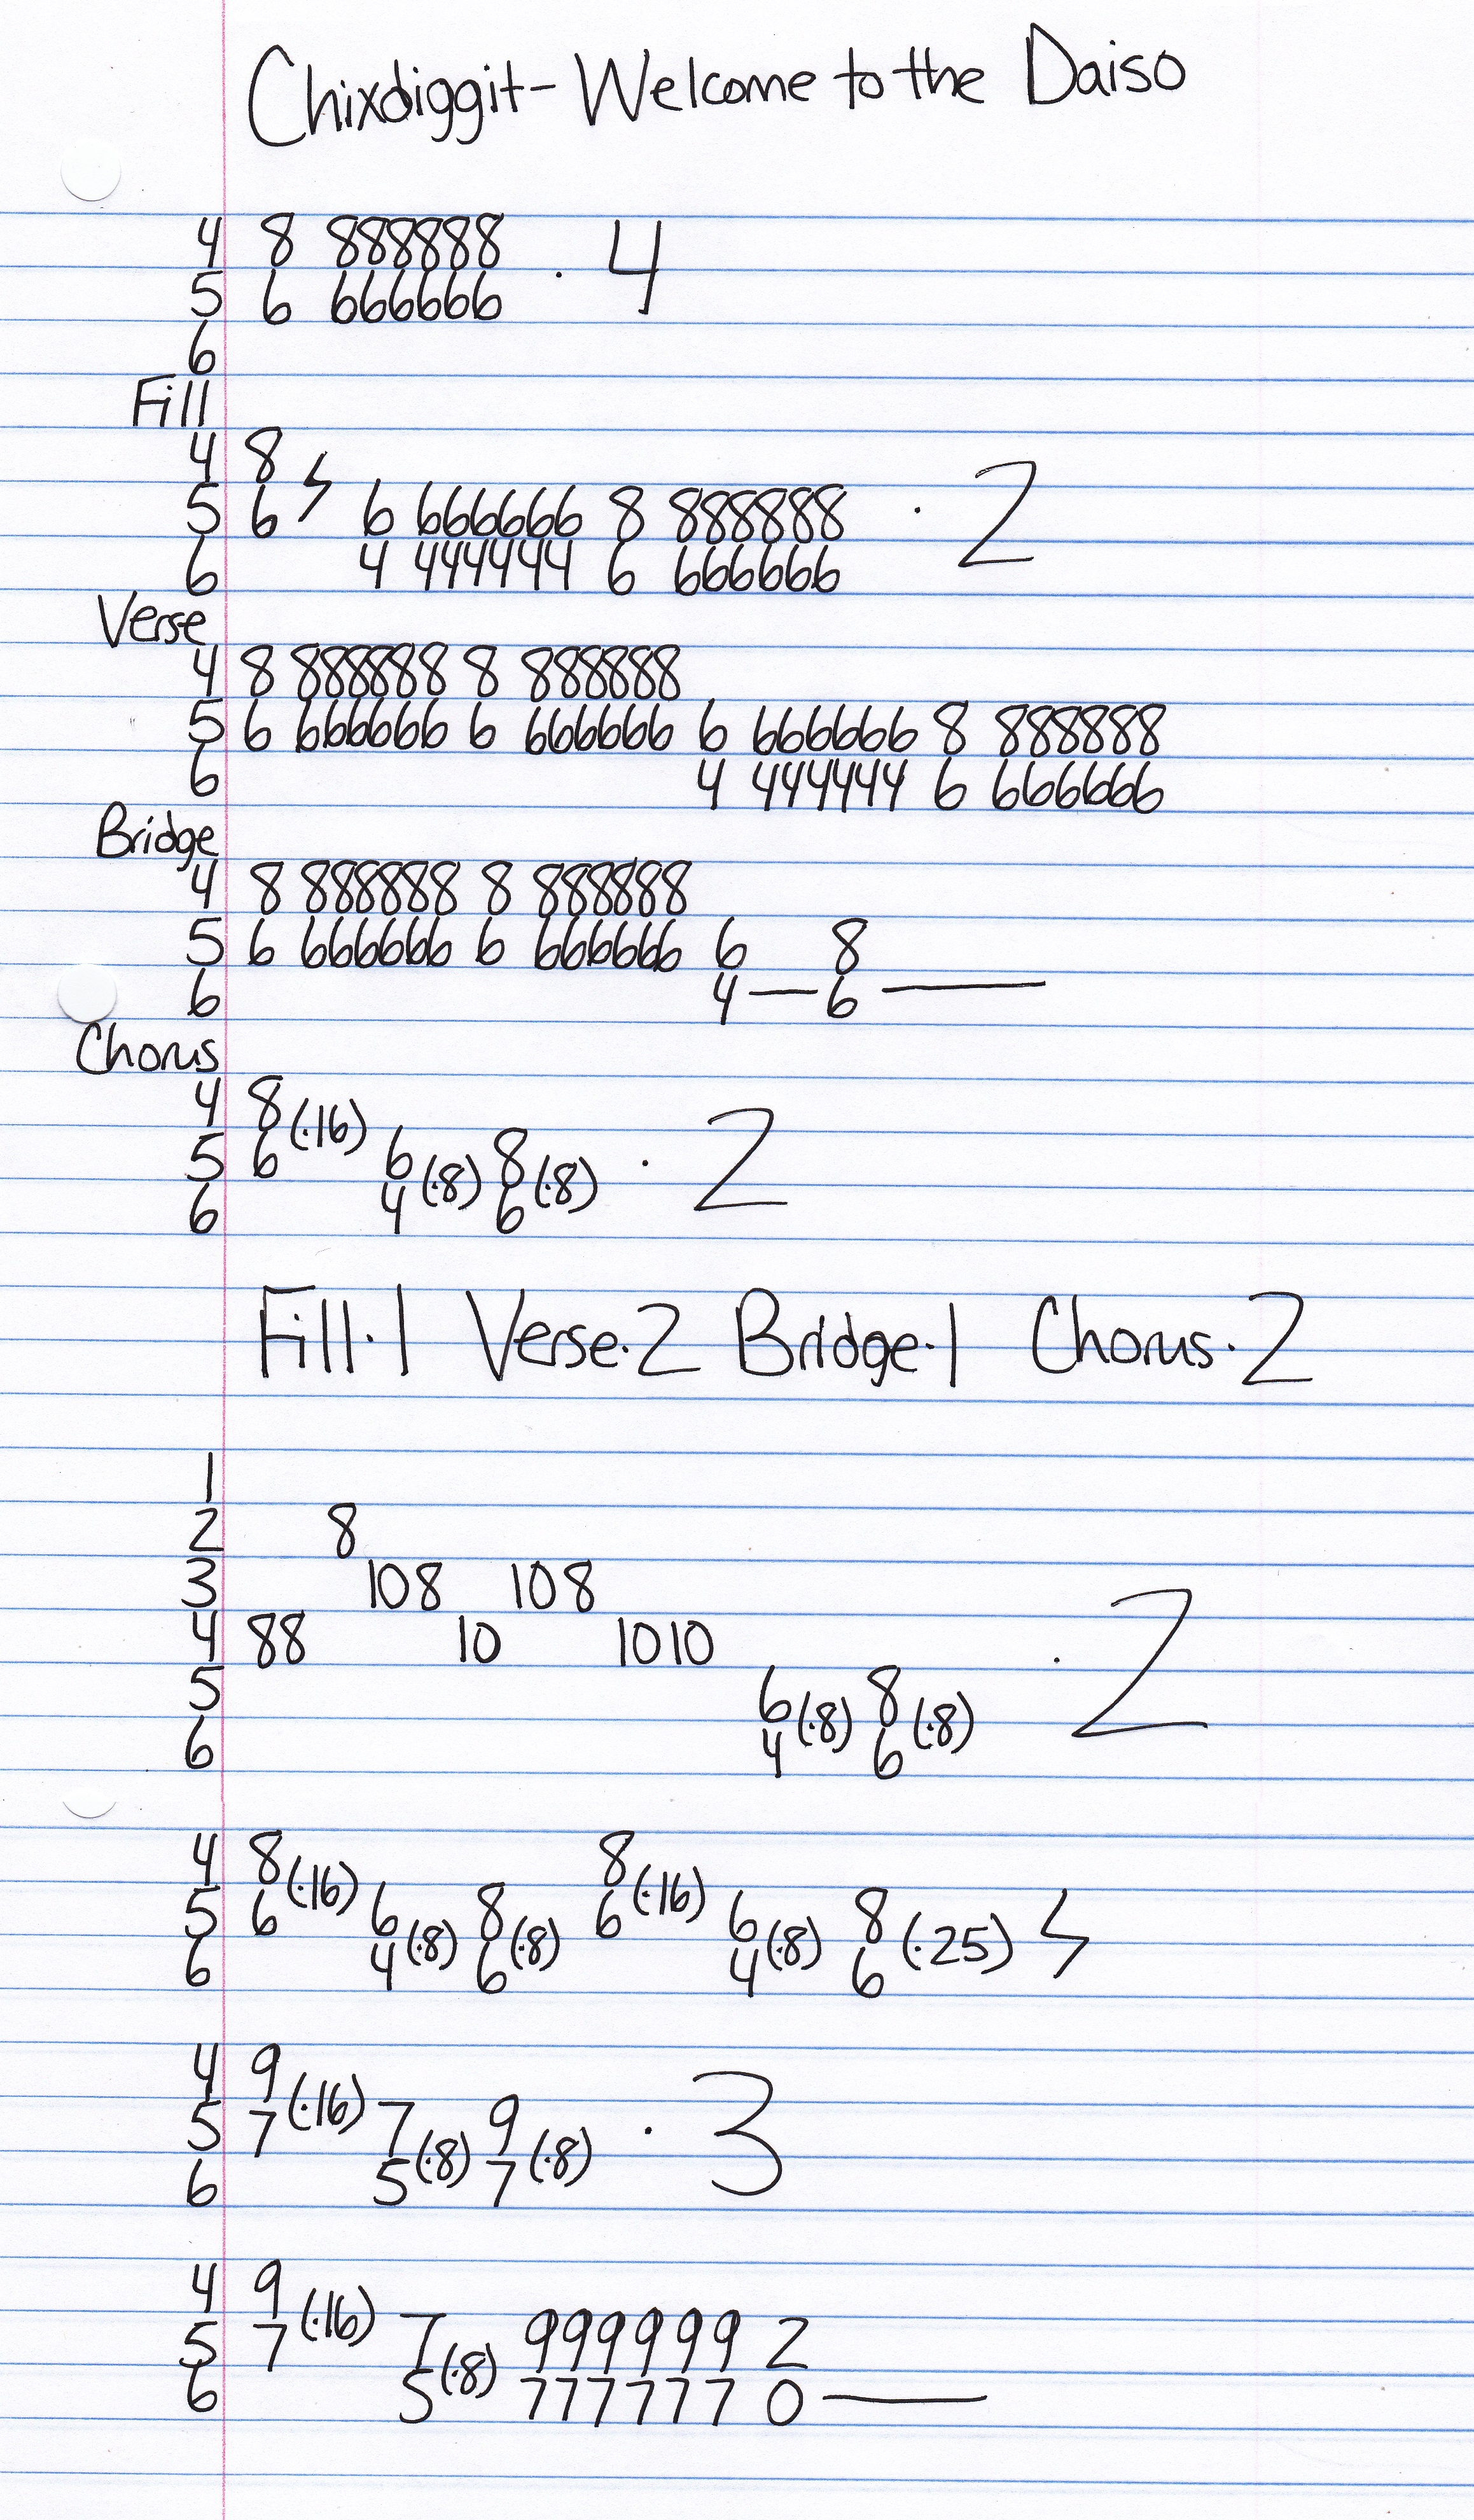 Chixdiggit - Welcome to the Daiso
4 8 888888
5 6 666666 · 4
6
Fill
4 8
5 6 6 666666 8 888888 · 2
6 4 444444 6 666666
Verse
4 8 888888 8 888888
5 6 666666 6 666666 6 666666 8 888888
6 4 444444 6 666666
Bridge
4 8 888888 8 888888
5 6 666666 6 666666 6 8
6 4 — 6 —
Chorus
4 8 (·16)
5 6 6 (·8) 8 (·8) · 2
6 4 6
Fill·1 Verse·2 Bridge·1 Chorus·2
1
2 8
3 108 108
4 88 10 1010 · 2
5 6 (·8) 8 (·8)
6 4 6
4 8 (·16) 8 (·16)
5 6 6 (·8) 8 (·8) 6 6 (·8) 8 (·25)
6 4 6 4 6
4 9 (·16)
5 7 7 (·8) 9 (·8) · 3
6 5 7
4 9 (·16)
5 7 7 (·8) 999999 2
6 5 777777 0 —